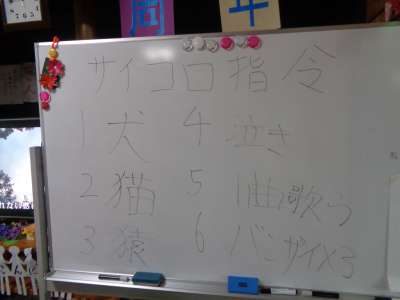 周年
サイコロ指令
1 犬 4 泣き
2 猫 5 1曲歌う
3 猿 6 バンザイ×3